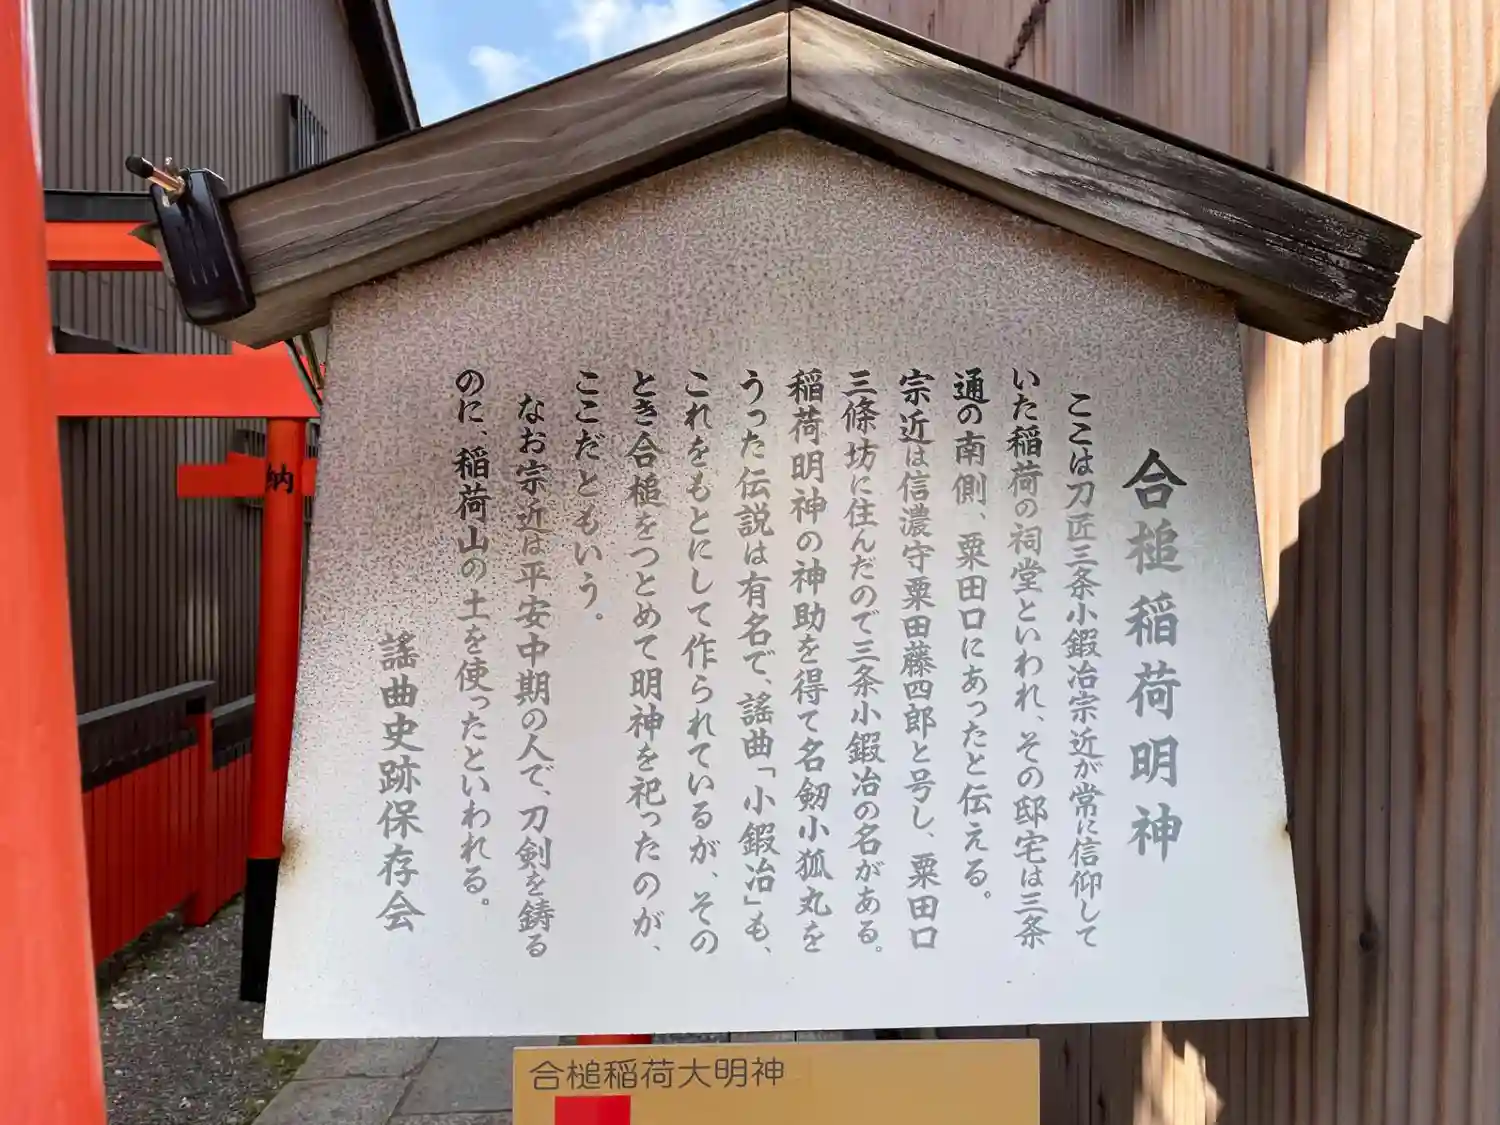 合槌稲荷明神
ここは刀匠三条小鍛冶宗近が常に信仰して
いた稲荷の祠堂といわれ、その邸宅は三条
通の南側、粟田口にあったと伝える。
宗近は信濃守粟田藤四郎と号し、粟田口
三條坊に住んだので三条小鍛冶の名がある。
稲荷明神の神助を得て名剱小狐丸を
うった伝説は有名で、謡曲「小鍛冶」も、
これをもとにして作られているが、その
とき合槌をつとめて明神を祀ったのが、
ここだともいう。
なお宗近は平安中期の人で、刀剣を鋳る
のに、稲荷山の土を使ったといわれる。
謡曲史跡保存会
納
合槌稲荷大明神